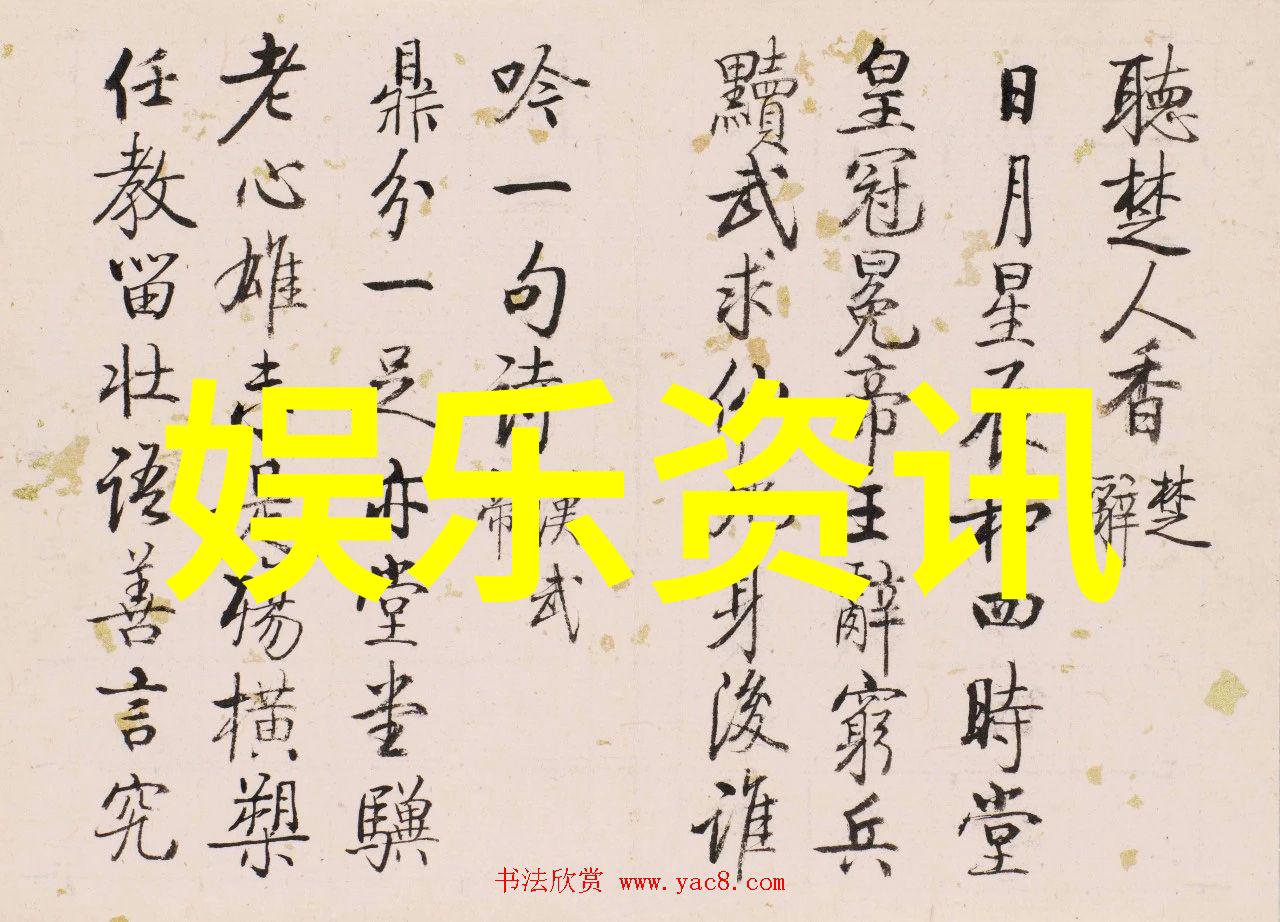 聽楚人香 楚辭
日月星辰和四時堂
皇冠冕帝王辭窮兵
黷武求身後誰
吟一句詩 漢武帝
鼎分一足亦堂堂驥
老心雄橫槊
任教留壯語善言究
娱乐资讯
书法欣赏 www.yac8.com